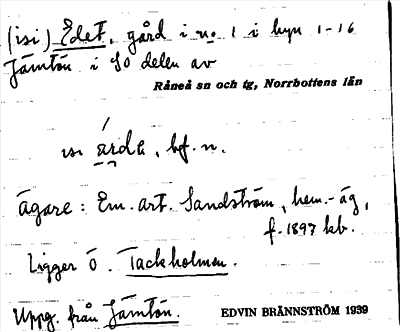 (isi) Edet, gård i n:o 1 i byn 1-16
Jämtön i SO delen av
Råneå sn och tg, Norrbottens län
isi ärdè, bf. n.
Ägare: Em. art. Sandström, hem.-äg,
f. 1897 kb.
Ligger Ö. Tackholmen.
Uppg. från Jämtön.
EDVIN BRÄNNSTRÖM 1939